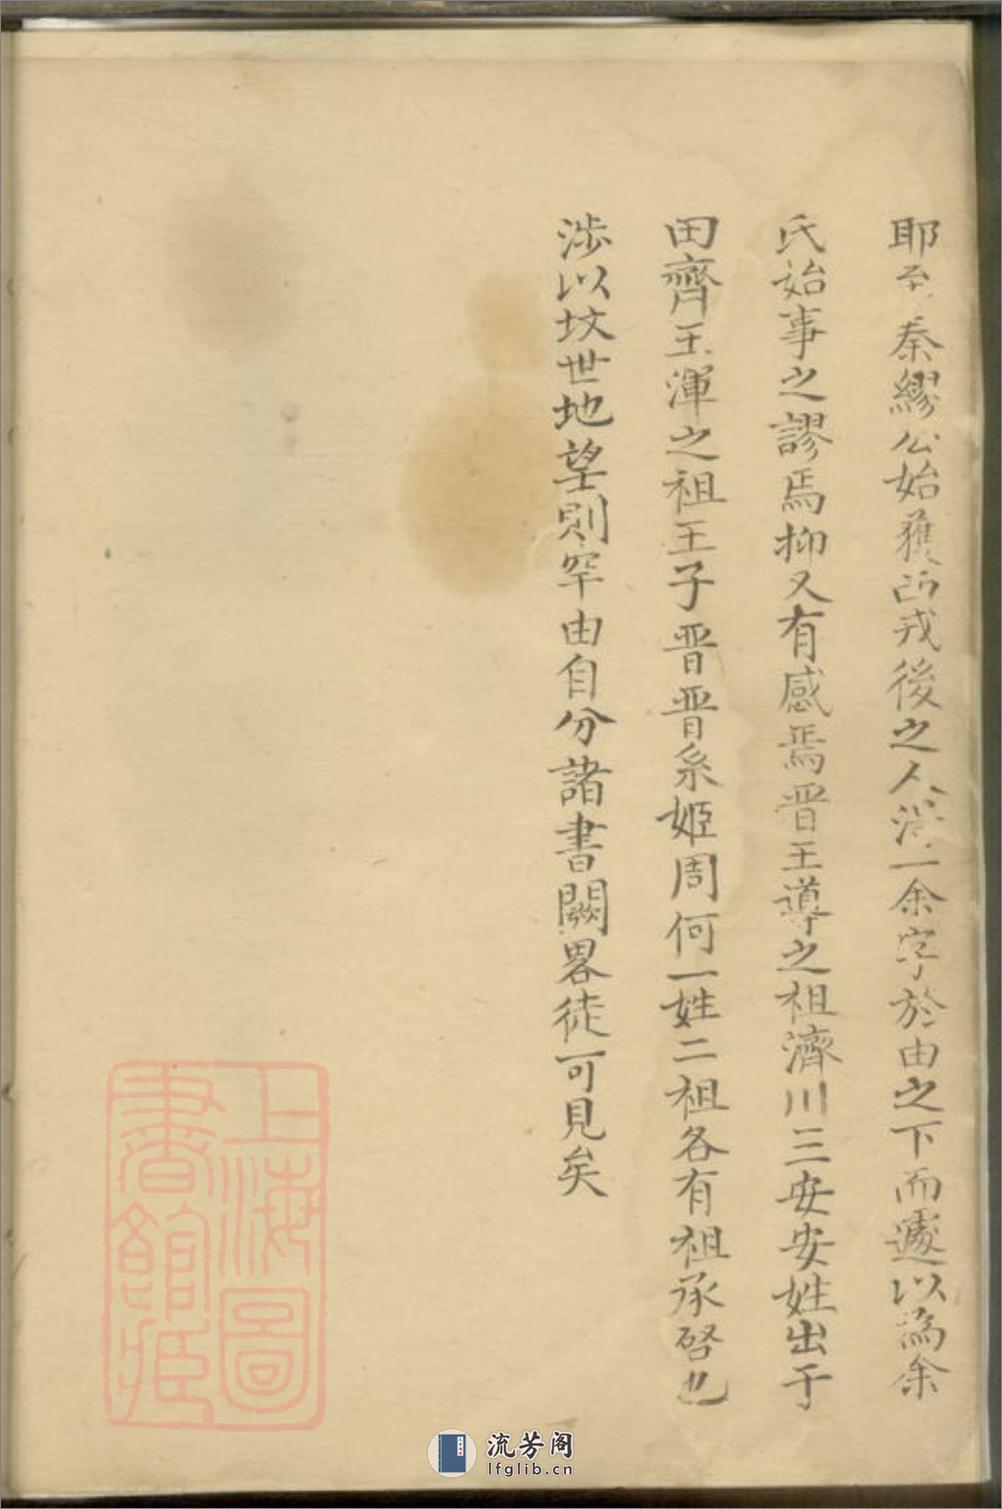 耶至秦繆公始獲西戎後之人湨一余字於由之下而遽以為余
氏始事之謬焉抑又有感焉晋王導之祖濟川三安安姓出于
田齊王渾之祖王子晋晋系姬周何一姓二祖各有祖承啓也
涉以坟世地望則罕由自分諸書闕畧徒可見矣
上海圖
書館藏
流芳阁
lfglib.cn